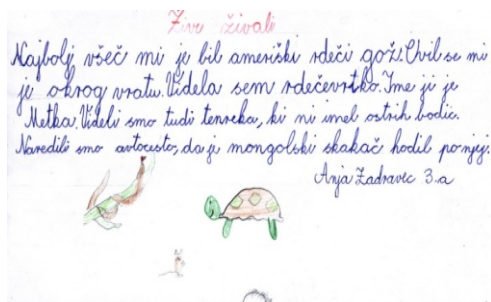 Žive živali
Najbolj všeč mi je bil ameriški rdeči gož. Ovil se mi
je okrog vratu. Videla sem rdečevrtko. Ime ji je
Metka. Videli smo tudi tenreka, ki ni imel ostrih bodic.
Naredili smo avtocesto, da je mongolski skakač hodil po njej.
Anja Zadravec 3.a